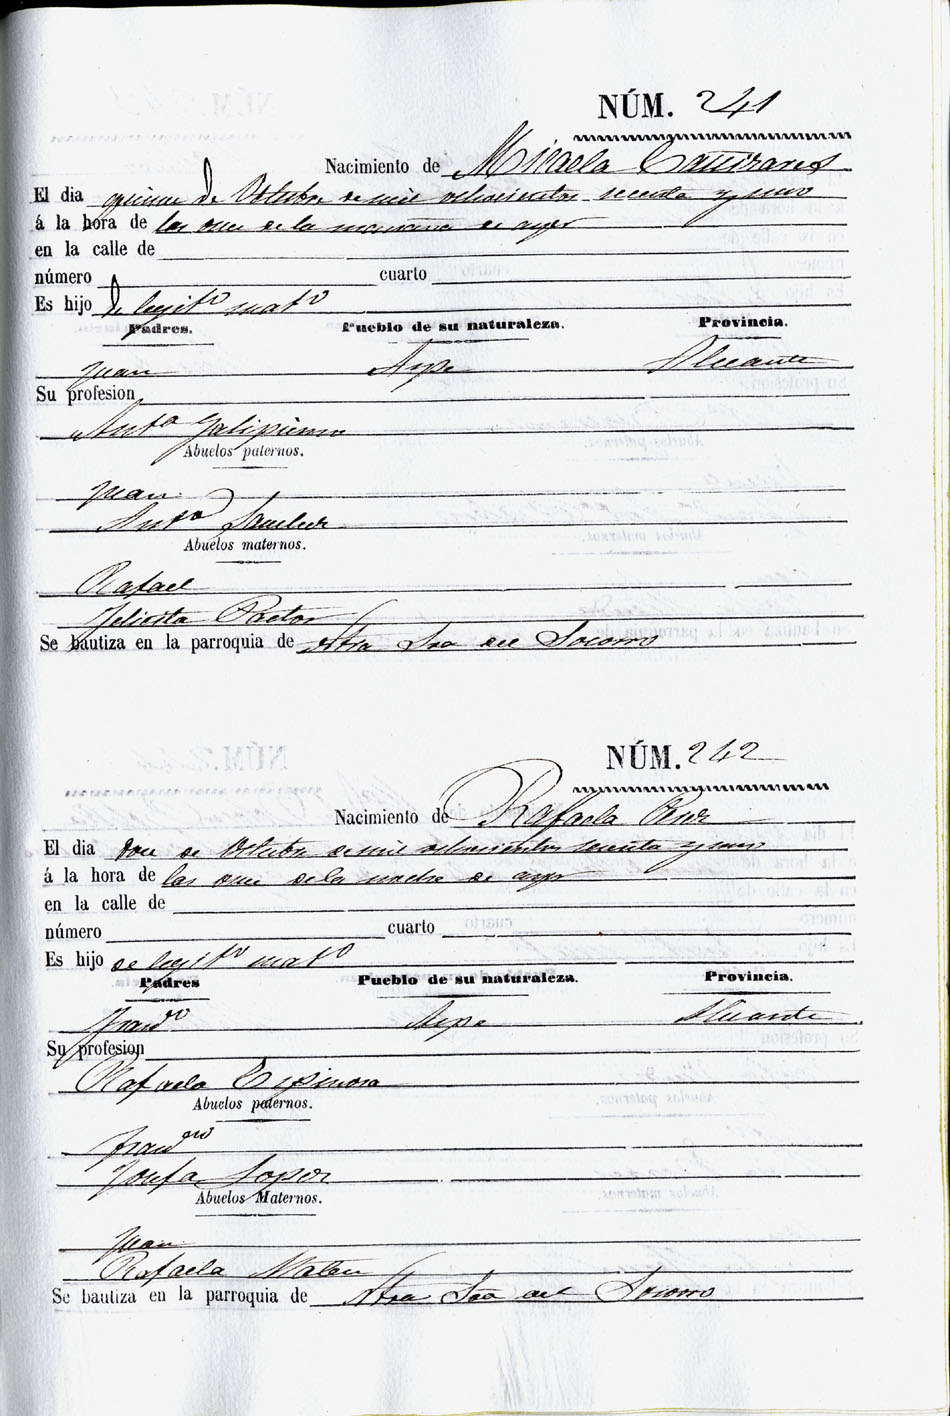 NÚM. 241
Nacimiento de Micaela Cañizares
El dia quince de Octubre de mil ochocientos secenta y uno
á la hora de las once de la mañana de ayer
en la calle de
número cuarto
Es hijo de legit.º mat.º
Padres. Pueblo de su naturaleza. Provincia.
Juan Aspe Alicante
Su profesion
Ant.ª Galipienso
Abuelos paternos.
Juan
Ant.ª Sanchez
Abuelos maternos.
Rafael
Felicita Pastor
Se bautiza en la parroquia de Ntra Sra del Socorro
NÚM. 242
Nacimiento de Rafaela Perez
El dia doce de Octubre de mil ochocientos secenta y uno
á la hora de las once de la noche de ayer
en la calle de
número cuarto
Es hijo de legit.º mat.º
Padres Pueblo de su naturaleza. Provincia.
Fran.co Aspe Alicante
Su profesion
Rafaela Espinosa
Abuelos paternos.
Fran.co
Josefa Lopez
Abuelos Maternos.
Juan
Rafaela Mateu
Se bautiza en la parroquia de Ntra Sra del Socorro